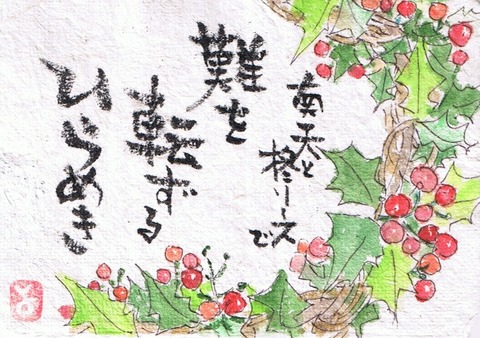 南天と
柊リースで
難を
転ずる
ひらめき